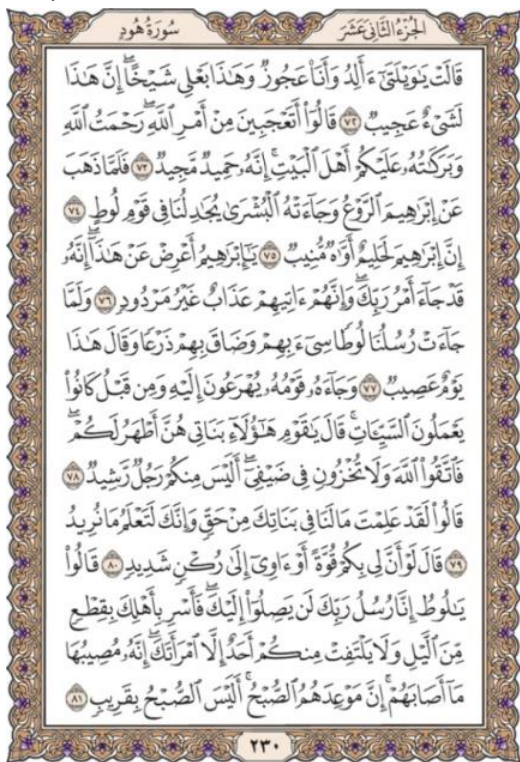 الجزء الثاني عشر
سورة هود
قَالَتْ يَـٰوَيْلَتَىٰٓ ءَأَلِدُ وَأَنَا۠ عَجُوزٌ وَهَـٰذَا بَعْلِى شَيْخًا ۖ إِنَّ هَـٰذَا
لَشَىْءٌ عَجِيبٌ ٧٢ قَالُوٓا۟ أَتَعْجَبِينَ مِنْ أَمْرِ ٱللَّهِ ۖ رَحْمَتُ ٱللَّهِ
وَبَرَكَـٰتُهُۥ عَلَيْكُمْ أَهْلَ ٱلْبَيْتِ ۚ إِنَّهُۥ حَمِيدٌ مَّجِيدٌ ٧٣ فَلَمَّا ذَهَبَ
عَنْ إِبْرَٰهِيمَ ٱلرَّوْعُ وَجَآءَتْهُ ٱلْبُشْرَىٰ يُجَـٰدِلُنَا فِى قَوْمِ لُوطٍ ٧٤
إِنَّ إِبْرَٰهِيمَ لَحَلِيمٌ أَوَّٰهٌ مُّنِيبٌ ٧٥ يَـٰٓإِبْرَٰهِيمُ أَعْرِضْ عَنْ هَـٰذَآ ۖ إِنَّهُۥ
قَدْ جَآءَ أَمْرُ رَبِّكَ ۖ وَإِنَّهُمْ ءَاتِيهِمْ عَذَابٌ غَيْرُ مَرْدُودٍ ٧٦ وَلَمَّا
جَآءَتْ رُسُلُنَا لُوطًا سِىٓءَ بِهِمْ وَضَاقَ بِهِمْ ذَرْعًا وَقَالَ هَـٰذَا
يَوْمٌ عَصِيبٌ ٧٧ وَجَآءَهُۥ قَوْمُهُۥ يُهْرَعُونَ إِلَيْهِ وَمِن قَبْلُ كَانُوا۟
يَعْمَلُونَ ٱلسَّيِّـَٔاتِ ۚ قَالَ يَـٰقَوْمِ هَـٰٓؤُلَآءِ بَنَاتِى هُنَّ أَطْهَرُ لَكُمْ ۖ
فَٱتَّقُوا۟ ٱللَّهَ وَلَا تُخْزُونِ فِى ضَيْفِىٓ ۖ أَلَيْسَ مِنكُمْ رَجُلٌ رَّشِيدٌ ٧٨
قَالُوا۟ لَقَدْ عَلِمْتَ مَا لَنَا فِى بَنَاتِكَ مِنْ حَقٍّ وَإِنَّكَ لَتَعْلَمُ مَا نُرِيدُ
٧٩ قَالَ لَوْ أَنَّ لِى بِكُمْ قُوَّةً أَوْ ءَاوِىٓ إِلَىٰ رُكْنٍ شَدِيدٍ ٨٠ قَالُوا۟
يَـٰلُوطُ إِنَّا رُسُلُ رَبِّكَ لَن يَصِلُوٓا۟ إِلَيْكَ ۖ فَأَسْرِ بِأَهْلِكَ بِقِطْعٍ
مِّنَ ٱلَّيْلِ وَلَا يَلْتَفِتْ مِنكُمْ أَحَدٌ إِلَّا ٱمْرَأَتَكَ ۖ إِنَّهُۥ مُصِيبُهَا
مَآ أَصَابَهُمْ ۚ إِنَّ مَوْعِدَهُمُ ٱلصُّبْحُ ۚ أَلَيْسَ ٱلصُّبْحُ بِقَرِيبٍ ٨١
٢٣٠